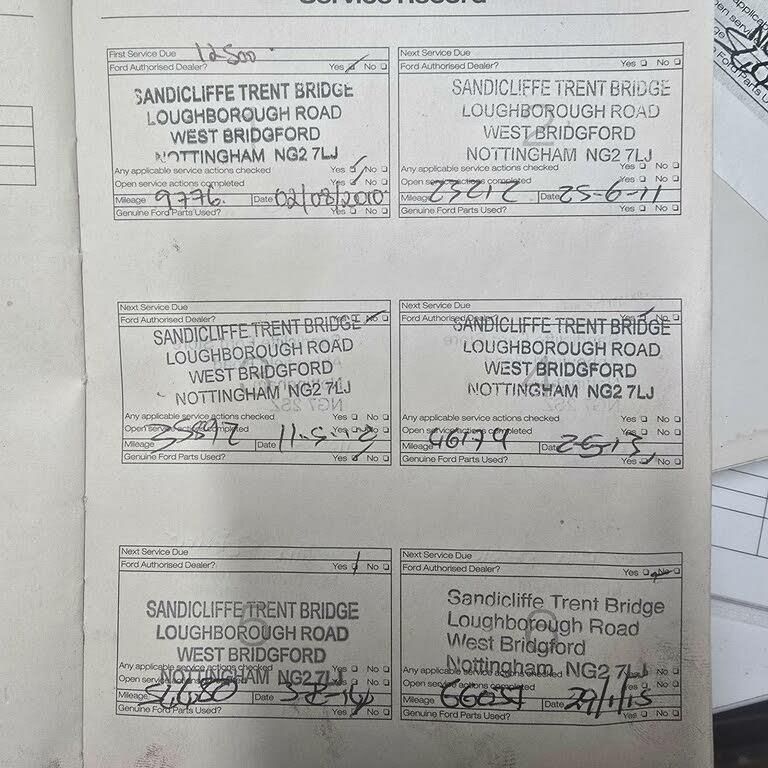 Service Record
First Service Due 12500
Ford Authorised Dealer? Yes No
SANDICLIFFE TRENT BRIDGE
LOUGHBOROUGH ROAD
WEST BRIDGFORD
NOTTINGHAM NG2 7LJ
Any applicable service actions checked Yes No
Open service actions completed Yes No
Mileage 9776 Date 02/08/2010
Genuine Ford Parts Used? Yes No
Next Service Due
Ford Authorised Dealer? Yes No
2
SANDICLIFFE TRENT BRIDGE
LOUGHBOROUGH ROAD
WEST BRIDGFORD
NOTTINGHAM NG2 7LJ
Any applicable service actions checked Yes No
Open service actions completed Yes No
Mileage 23212 Date 25-6-11
Genuine Ford Parts Used? Yes No
Next Service Due
Ford Authorised Dealer? Yes No
SANDICLIFFE TRENT BRIDGE
LOUGHBOROUGH ROAD
WEST BRIDGFORD
NOTTINGHAM NG2 7LJ
Any applicable service actions checked Yes No
Open service actions completed Yes No
Mileage Date
Genuine Ford Parts Used? Yes No
Next Service Due
Ford Authorised Dealer? Yes No
4
SANDICLIFFE TRENT BRIDGE
LOUGHBOROUGH ROAD
WEST BRIDGFORD
NOTTINGHAM NG2 7LJ
Any applicable service actions checked Yes No
Open service actions completed Yes No
Mileage 46179 Date
Genuine Ford Parts Used? Yes No
Next Service Due
Ford Authorised Dealer? Yes No
5
SANDICLIFFE TRENT BRIDGE
LOUGHBOROUGH ROAD
WEST BRIDGFORD
NOTTINGHAM NG2 7LJ
Any applicable service actions checked Yes No
Open service actions completed Yes No
Mileage 54680 Date
Genuine Ford Parts Used? Yes No
Next Service Due
Ford Authorised Dealer? Yes No
6
Sandicliffe Trent Bridge
Loughborough Road
West Bridgford
Nottingham NG2 7LJ
Any applicable service actions checked Yes No
Open service actions completed Yes No
Mileage Date 29/1/15
Genuine Ford Parts Used? Yes No